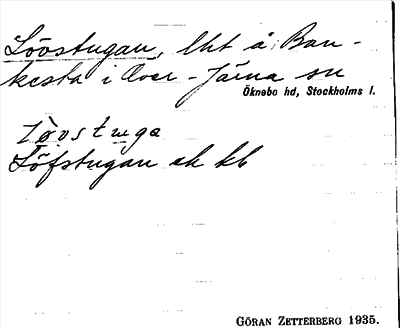 Lövstugan, lht å Ban-
kesta i Över-Järna sn
Öknebo hd, Stockholms l.
Löfstugan ek kb
GÖRAN ZETTERBERG 1935.